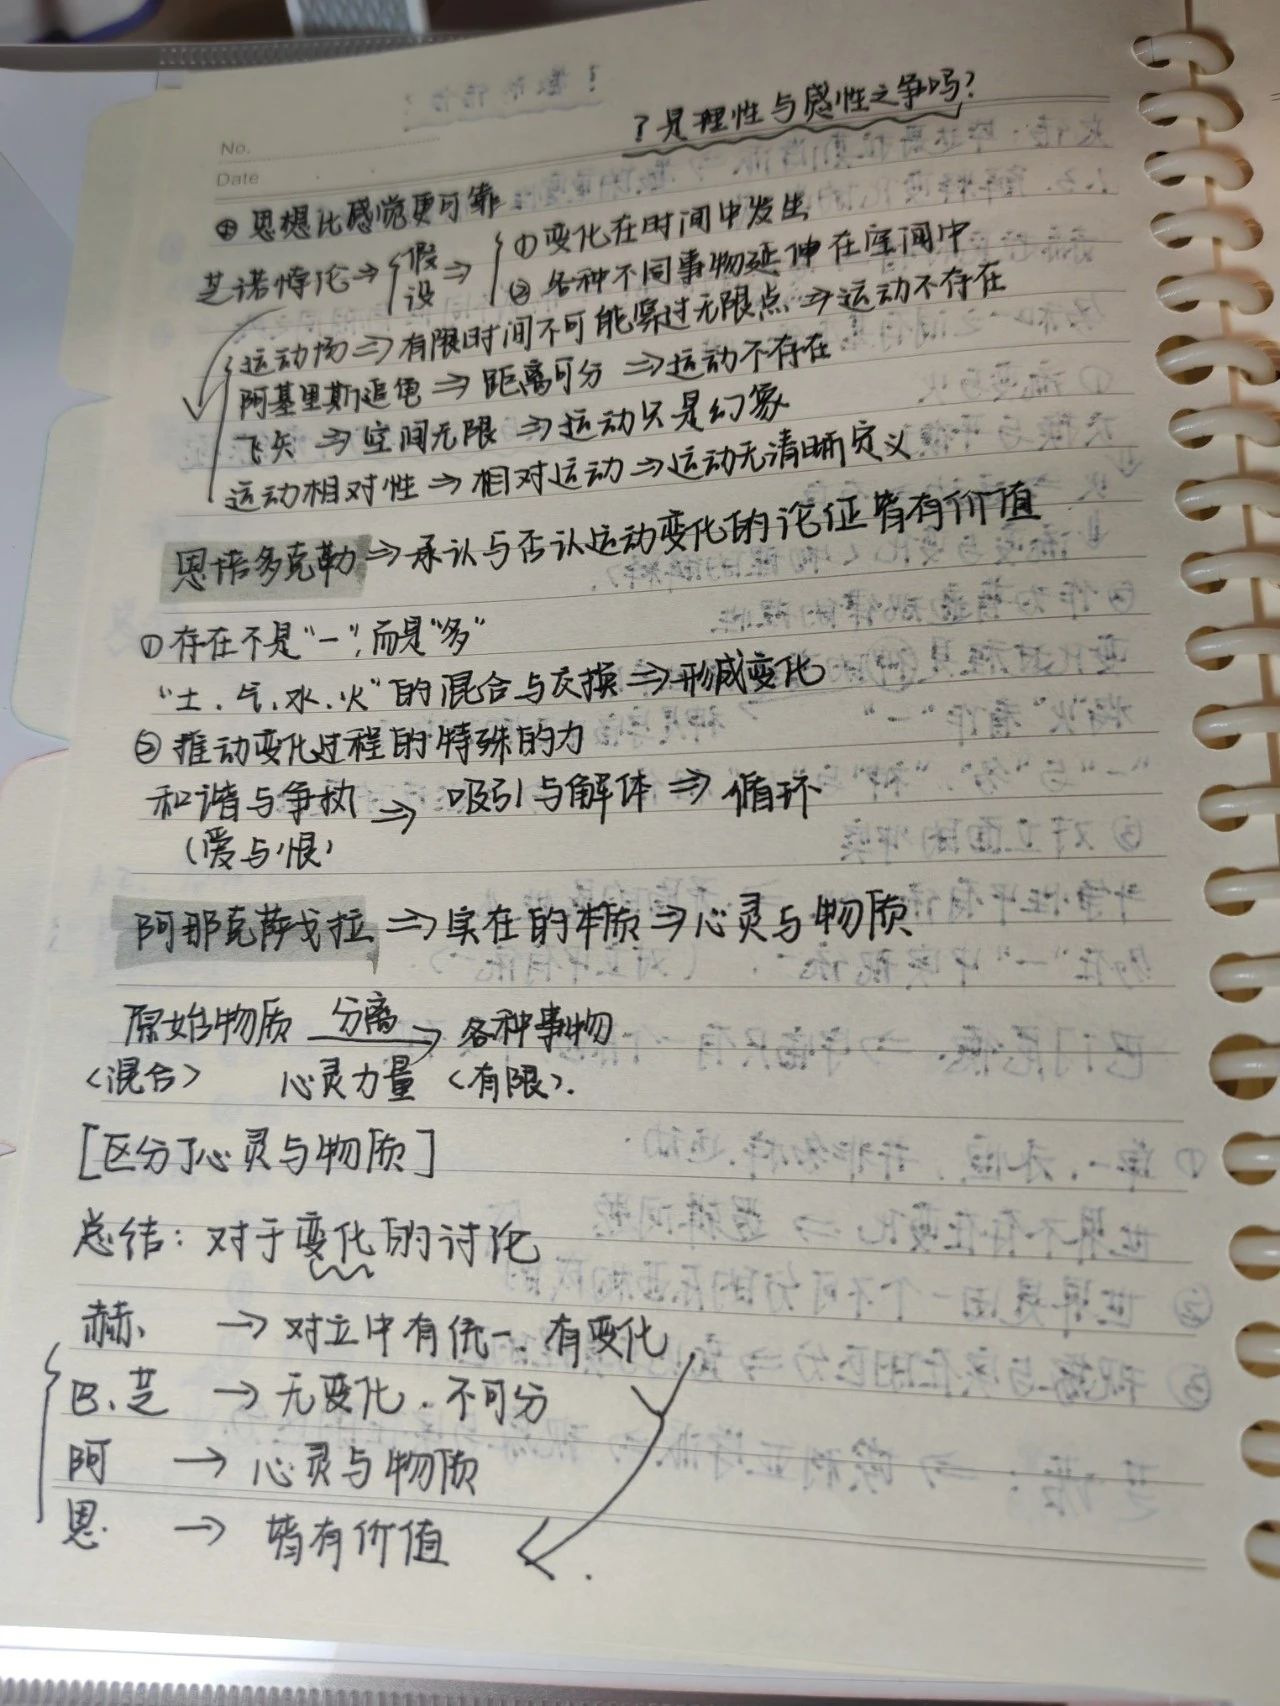 ？是理性与感性之争吗？
No.
Date
④ 思想比感觉更可靠
芝诺悖论 ⇒ { 假设 ⇒ { ① 变化在时间中发生
② 各种不同事物延伸在空间中
运动场 ⇒ 有限时间不可能穿过无限点 ⇒ 运动不存在
阿基里斯追龟 ⇒ 距离可分 ⇒ 运动不存在
飞矢 ⇒ 空间无限 ⇒ 运动只是幻象
运动相对性 ⇒ 相对运动 ⇒ 运动无清晰定义
恩培多克勒 ⇒ 承认与否认运动变化的论证皆有价值
① 存在不是“一”，而是“多”
“土、气、水、火”的混合与交换 ⇒ 形成变化
② 推动变化过程的特殊的力
和谐与争执 ⇒ 吸引与解体 ⇒ 循环
（爱与恨）
阿那克萨戈拉 ⇒ 实在的本质 ⇒ 心灵与物质
原始物质 分离→ 各种事物
<混合> 心灵力量 <有限>.
[区分了心灵与物质]
总结：对于变化的讨论
赫、 → 对立中有统一、有变化
巴、芝 → 无变化、不可分
阿 → 心灵与物质
恩. → 皆有价值